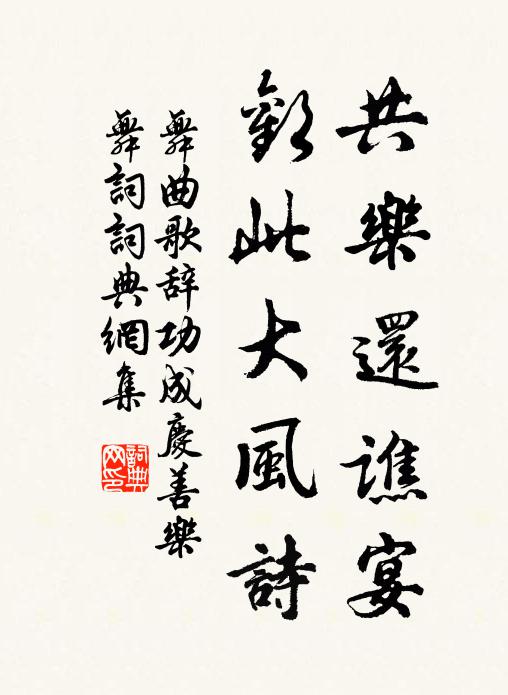 共樂還譙宴
歡此大風詩
舞曲歌辞功成慶善樂
舞詞詞典網集
詞典網印